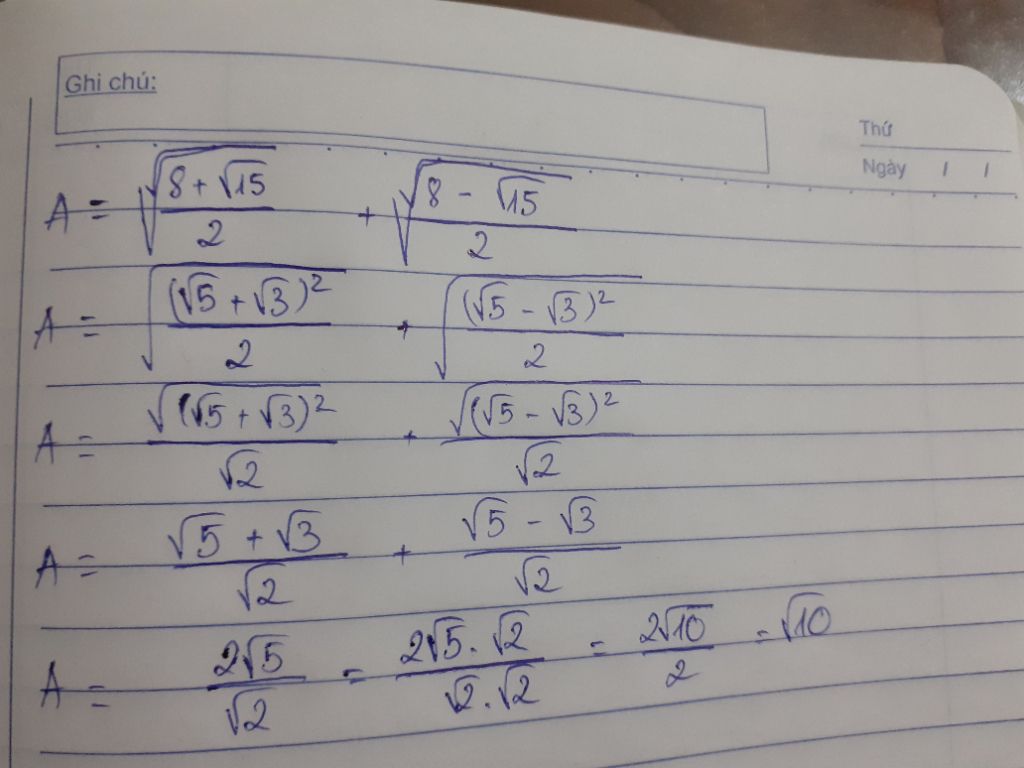 Ghi chú:
Thứ
Ngày / /
A = √((8 + √15)/2) + √((8 - √15)/2)
A = √((√5 + √3)²/2) + √((√5 - √3)²/2)
A = √((√5 + √3)²)/√2 + √((√5 - √3)²)/√2
A = (√5 + √3)/√2 + (√5 - √3)/√2
A = 2√5/√2 = (2√5 . √2)/(√2 . √2) = 2√10/2 = √10